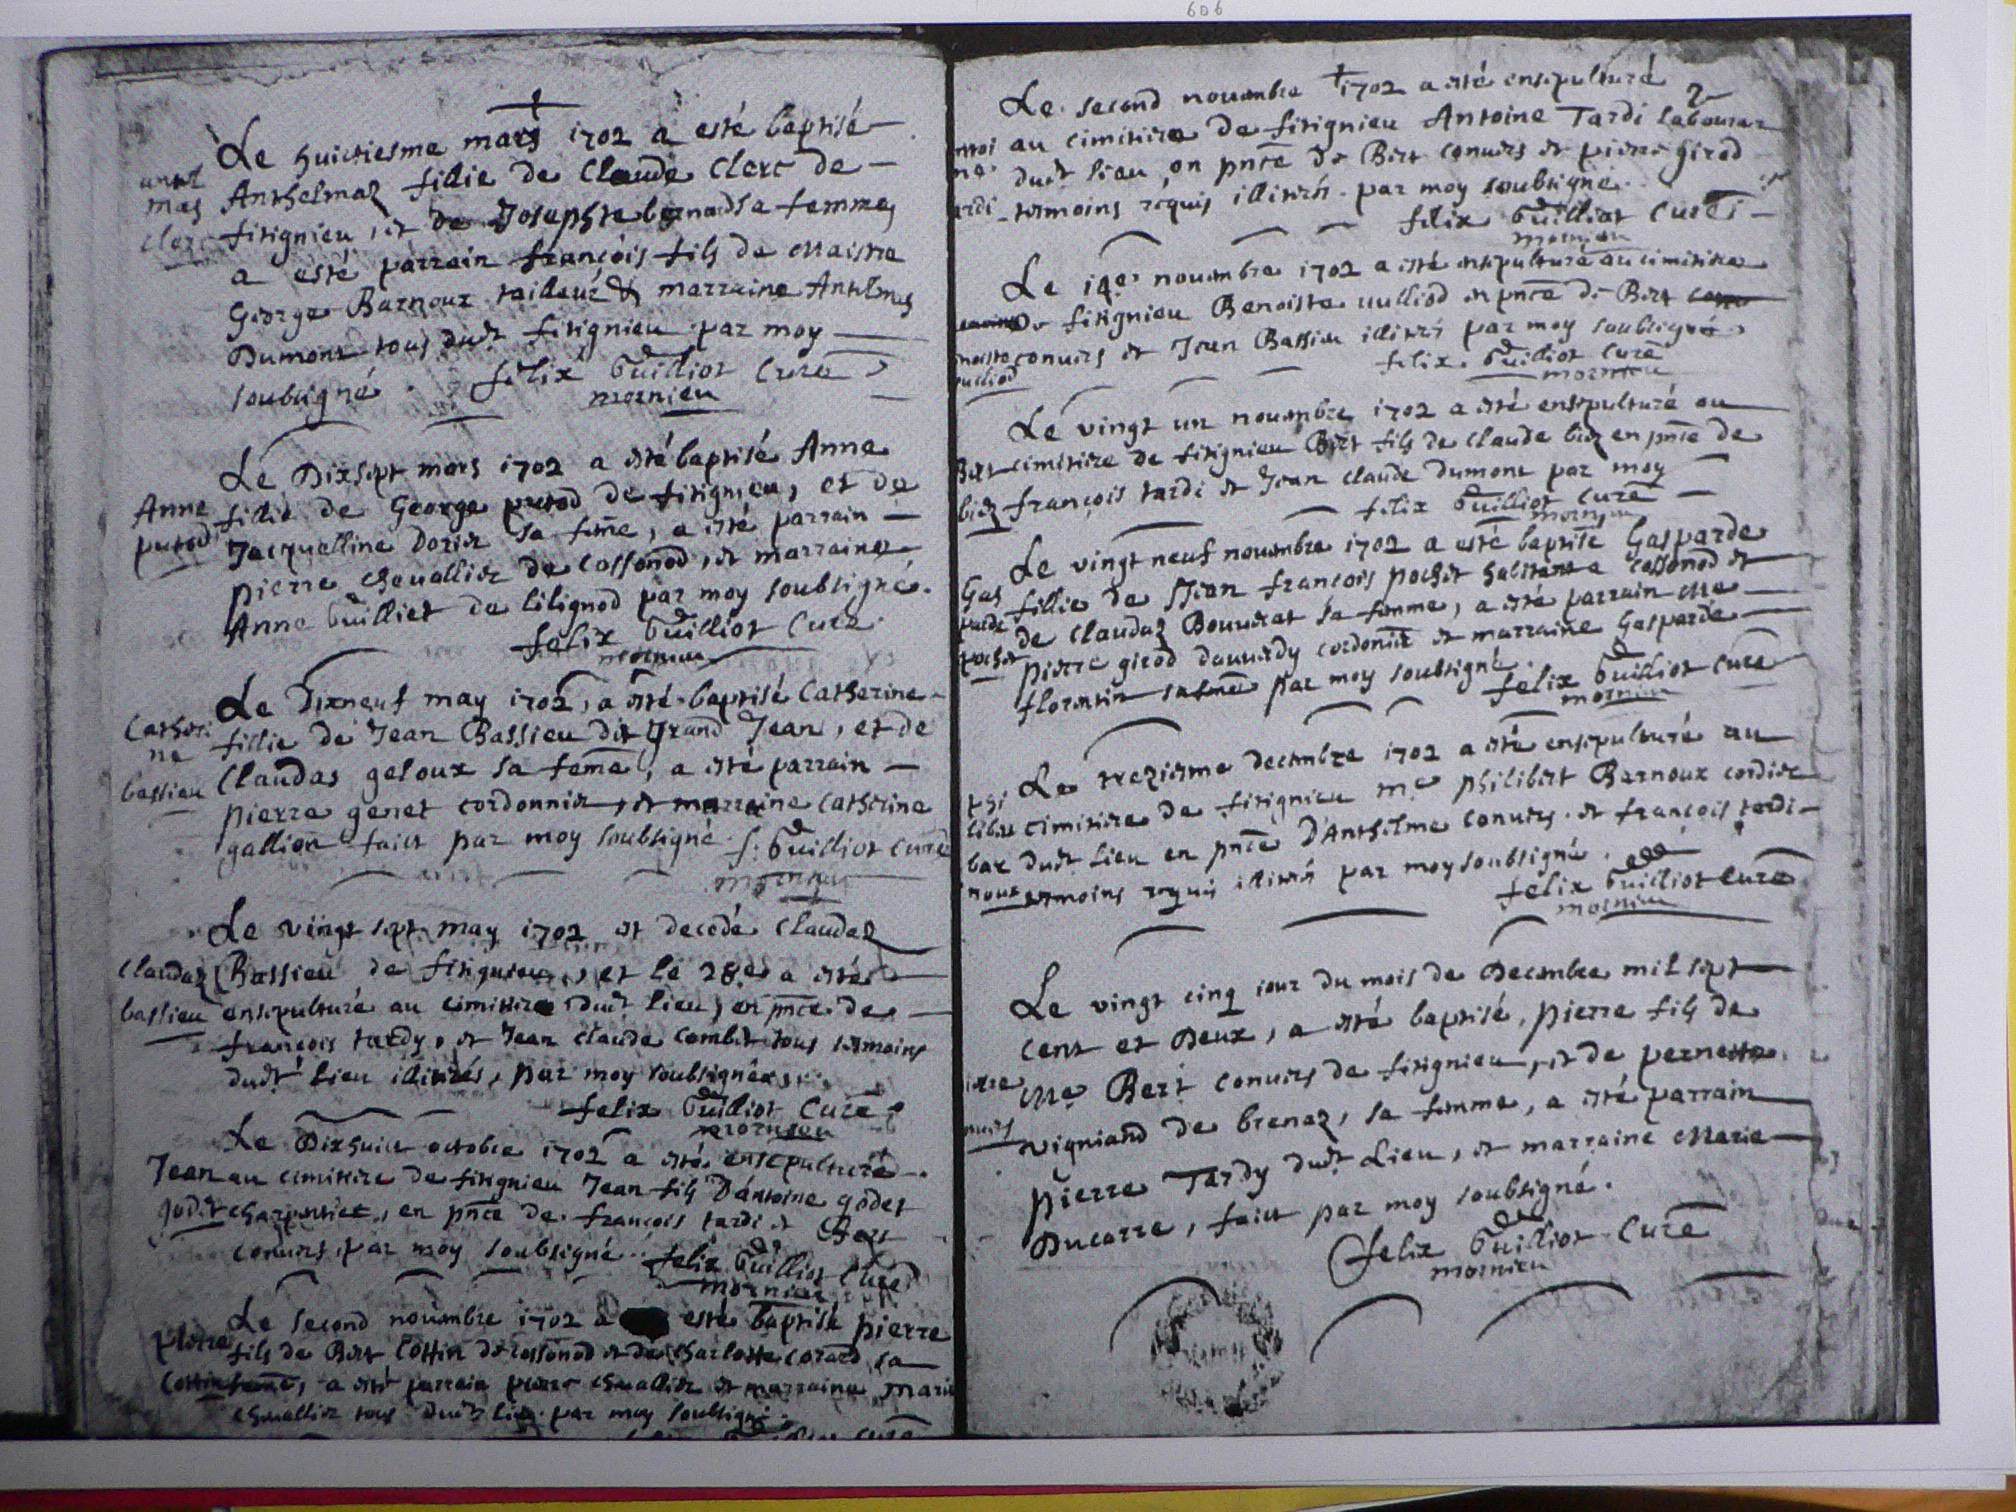 606
Le huictiesme mars 1702 a esté baptisé
Anthelmaz fillie de Claude Clerc de
fitignieu, et de Josephte bernard sa femme,
a esté parrain françois fils de Maistre
George Barnoux tailleur & marraine Anthelmaz
Dumont tous dudt fitignieu par moy
soubsigné. felix Guilliot Curé
mornieu
Clerc
Le Dixsept mars 1702 a esté baptisé Anne
fillie de George purod de fitignieu, et de
Jacquelline Dorier sa feme, a esté parrain
pierre chevallier de Cossonod, et marraine
Anne Guilliet de lilignod par moy soubsigné.
felix Guilliot Curé.
mornieu
Anne
purod
Le Dixneuf may 1702, a esté baptisé Catherine
fillie de Jean Bassieu dit grand Jean, et de
Claudas geloux sa feme, a esté parrain
pierre genet cordonnier, et marraine Catherine
gallion faict par moy soubsigné. f. Guilliot Curé
mornieu
Catheri
ne
bassieu
Le vingt sept may 1702 est decedé Claudaz
Bassieu de fitignieu, et le 28e a esté
ensepulturé au cimitire dudt lieu, en pnce de
françois tardy, et Jean claude Combet tous tesmoins
dudt lieu illitrés, par moy soubsigné
felix Guilliot Curé
mornieu
Claudaz
bassieu
Le Dixhuict octobre 1702 a esté ensepulturé
au cimitire de fitignieu Jean fils D'antoine godet
charpentier, en pnce de françois tardi et Bert
Convers par moy soubsigné. felix Guilliot Curé
mornieu
Jean
godet
Le second novembre 1702 a esté baptisé pierre
fils de Bert Cottin de cossonod et de Charlotte Corard sa
feme, a esté parrain pierre chevallier et marraine marie
chevallier tous dudt lieu par moy soubsigné.
Curé
pierre
Cottin
Le second novembre 1702 a esté ensepulturé
au cimitire de fitignieu Antoine Tardi laboureur
dudt lieu, en pnce de Bert Convers et pierre girod
tesmoins requis illitrés par moy soubsigné.
felix Guilliot Curé
mornieu
Le 14e novembre 1702 a esté ensepulturé au cimitire
de fitignieu Benoiste vulliod en pnce de Bert
convers et Jean Bassieu illitrés par moy soubsigné.
felix Guilliot Curé
mornieu
Le vingt un novembre 1702 a esté ensepulturé au
cimitire de fitignieu Bert fils de Claude biez en pnce de
françois tardi et Jean Claude dumont par moy
felix Guilliot Curé
mornieu
Bert
biez
Le vingt neuf novembre 1702 a esté baptisé Gasparde
fillie de Jean francois pochet habitant a Cossonod et
de Claudaz Bouvrat sa femme, a esté parrain Me
pierre girod cordonier et marraine Gasparde
florentin sa feme par moy soubsigné.
felix Guilliot Curé
mornieu
Gas
parde
pochet
Le trezieme decembre 1702 a esté ensepulturé au
cimitire de fitignieu me philibert Barnoux cordier
dudt lieu en pnce D'Anthelme Convers et françois tardi
tesmoins requis illitrés par moy soubsigné.
felix Guilliot Curé
mornieu
phi
libert
bar
noux
Le vingt cinq iour du mois de Decembre mil sept
cent et Deux, a esté baptisé, pierre fils de
Me Bert Convers de fitignieu, et de pernette
vigniand de brenaz, sa femme, a esté parrain
pierre Tardy dudt Lieu, et marraine Marie
Ducarre, faict par moy soubsigné.
felix Guilliot Curé
mornieu